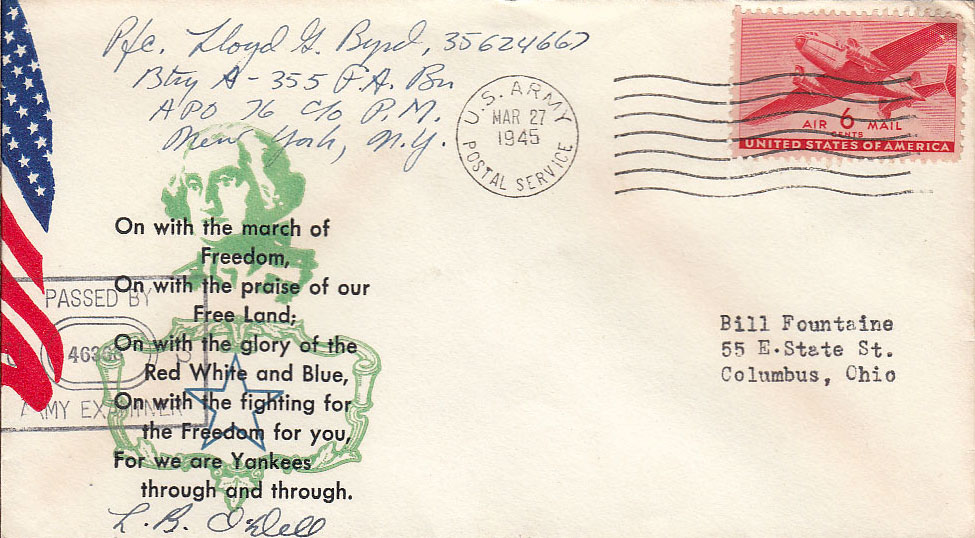 Pfc. Lloyd G. Byrd, 35624667
Btry A - 355 F.A. Bn
APO 76 c/o P.M.
New York, N.Y.
U.S. ARMY
MAR 27
1945
POSTAL SERVICE
AIR 6 MAIL
CENTS
UNITED STATES OF AMERICA
On with the march of
Freedom,
On with the praise of our
Free Land;
On with the glory of the
Red White and Blue,
On with the fighting for
the Freedom for you,
For we are Yankees
through and through.
PASSED BY
ARMY EXAMINER
L. B. O'Dell
Bill Fountaine
55 E.State St.
Columbus, Ohio